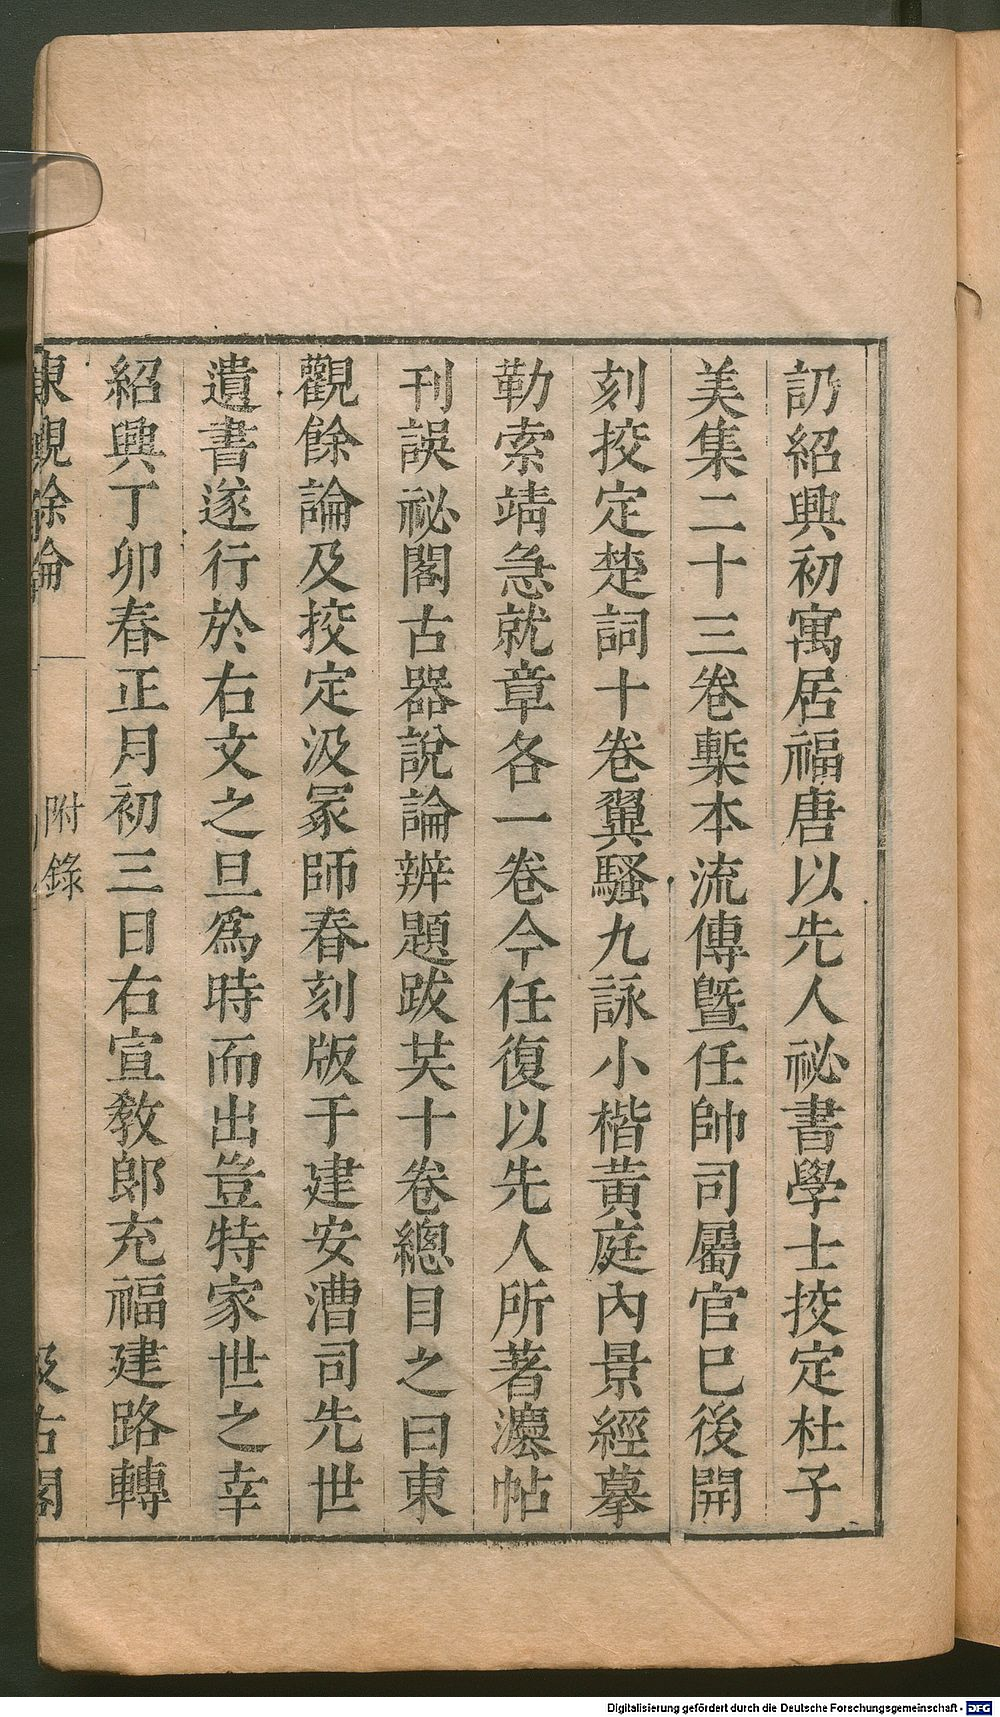 訒紹興初寓居福唐以先人祕書學士挍定杜子
美集二十三卷槧本流傳暨任帥司屬官已後開
刻挍定楚詞十卷翼騷九詠小楷黃庭內景經摹
勒索靖急就章各一卷今任復以先人所著灋帖
刊誤祕閣古器說論辨題跋共十卷總目之曰東
觀餘論及挍定汲冢師春刻版于建安漕司先世
遺書遂行於右文之旦爲時而出豈特家世之幸
紹興丁卯春正月初三日右宣敎郎充福建路轉
東觀餘論
附錄
汲古閣
Digitalisierung gefördert durch die Deutsche Forschungsgemeinschaft - DFG